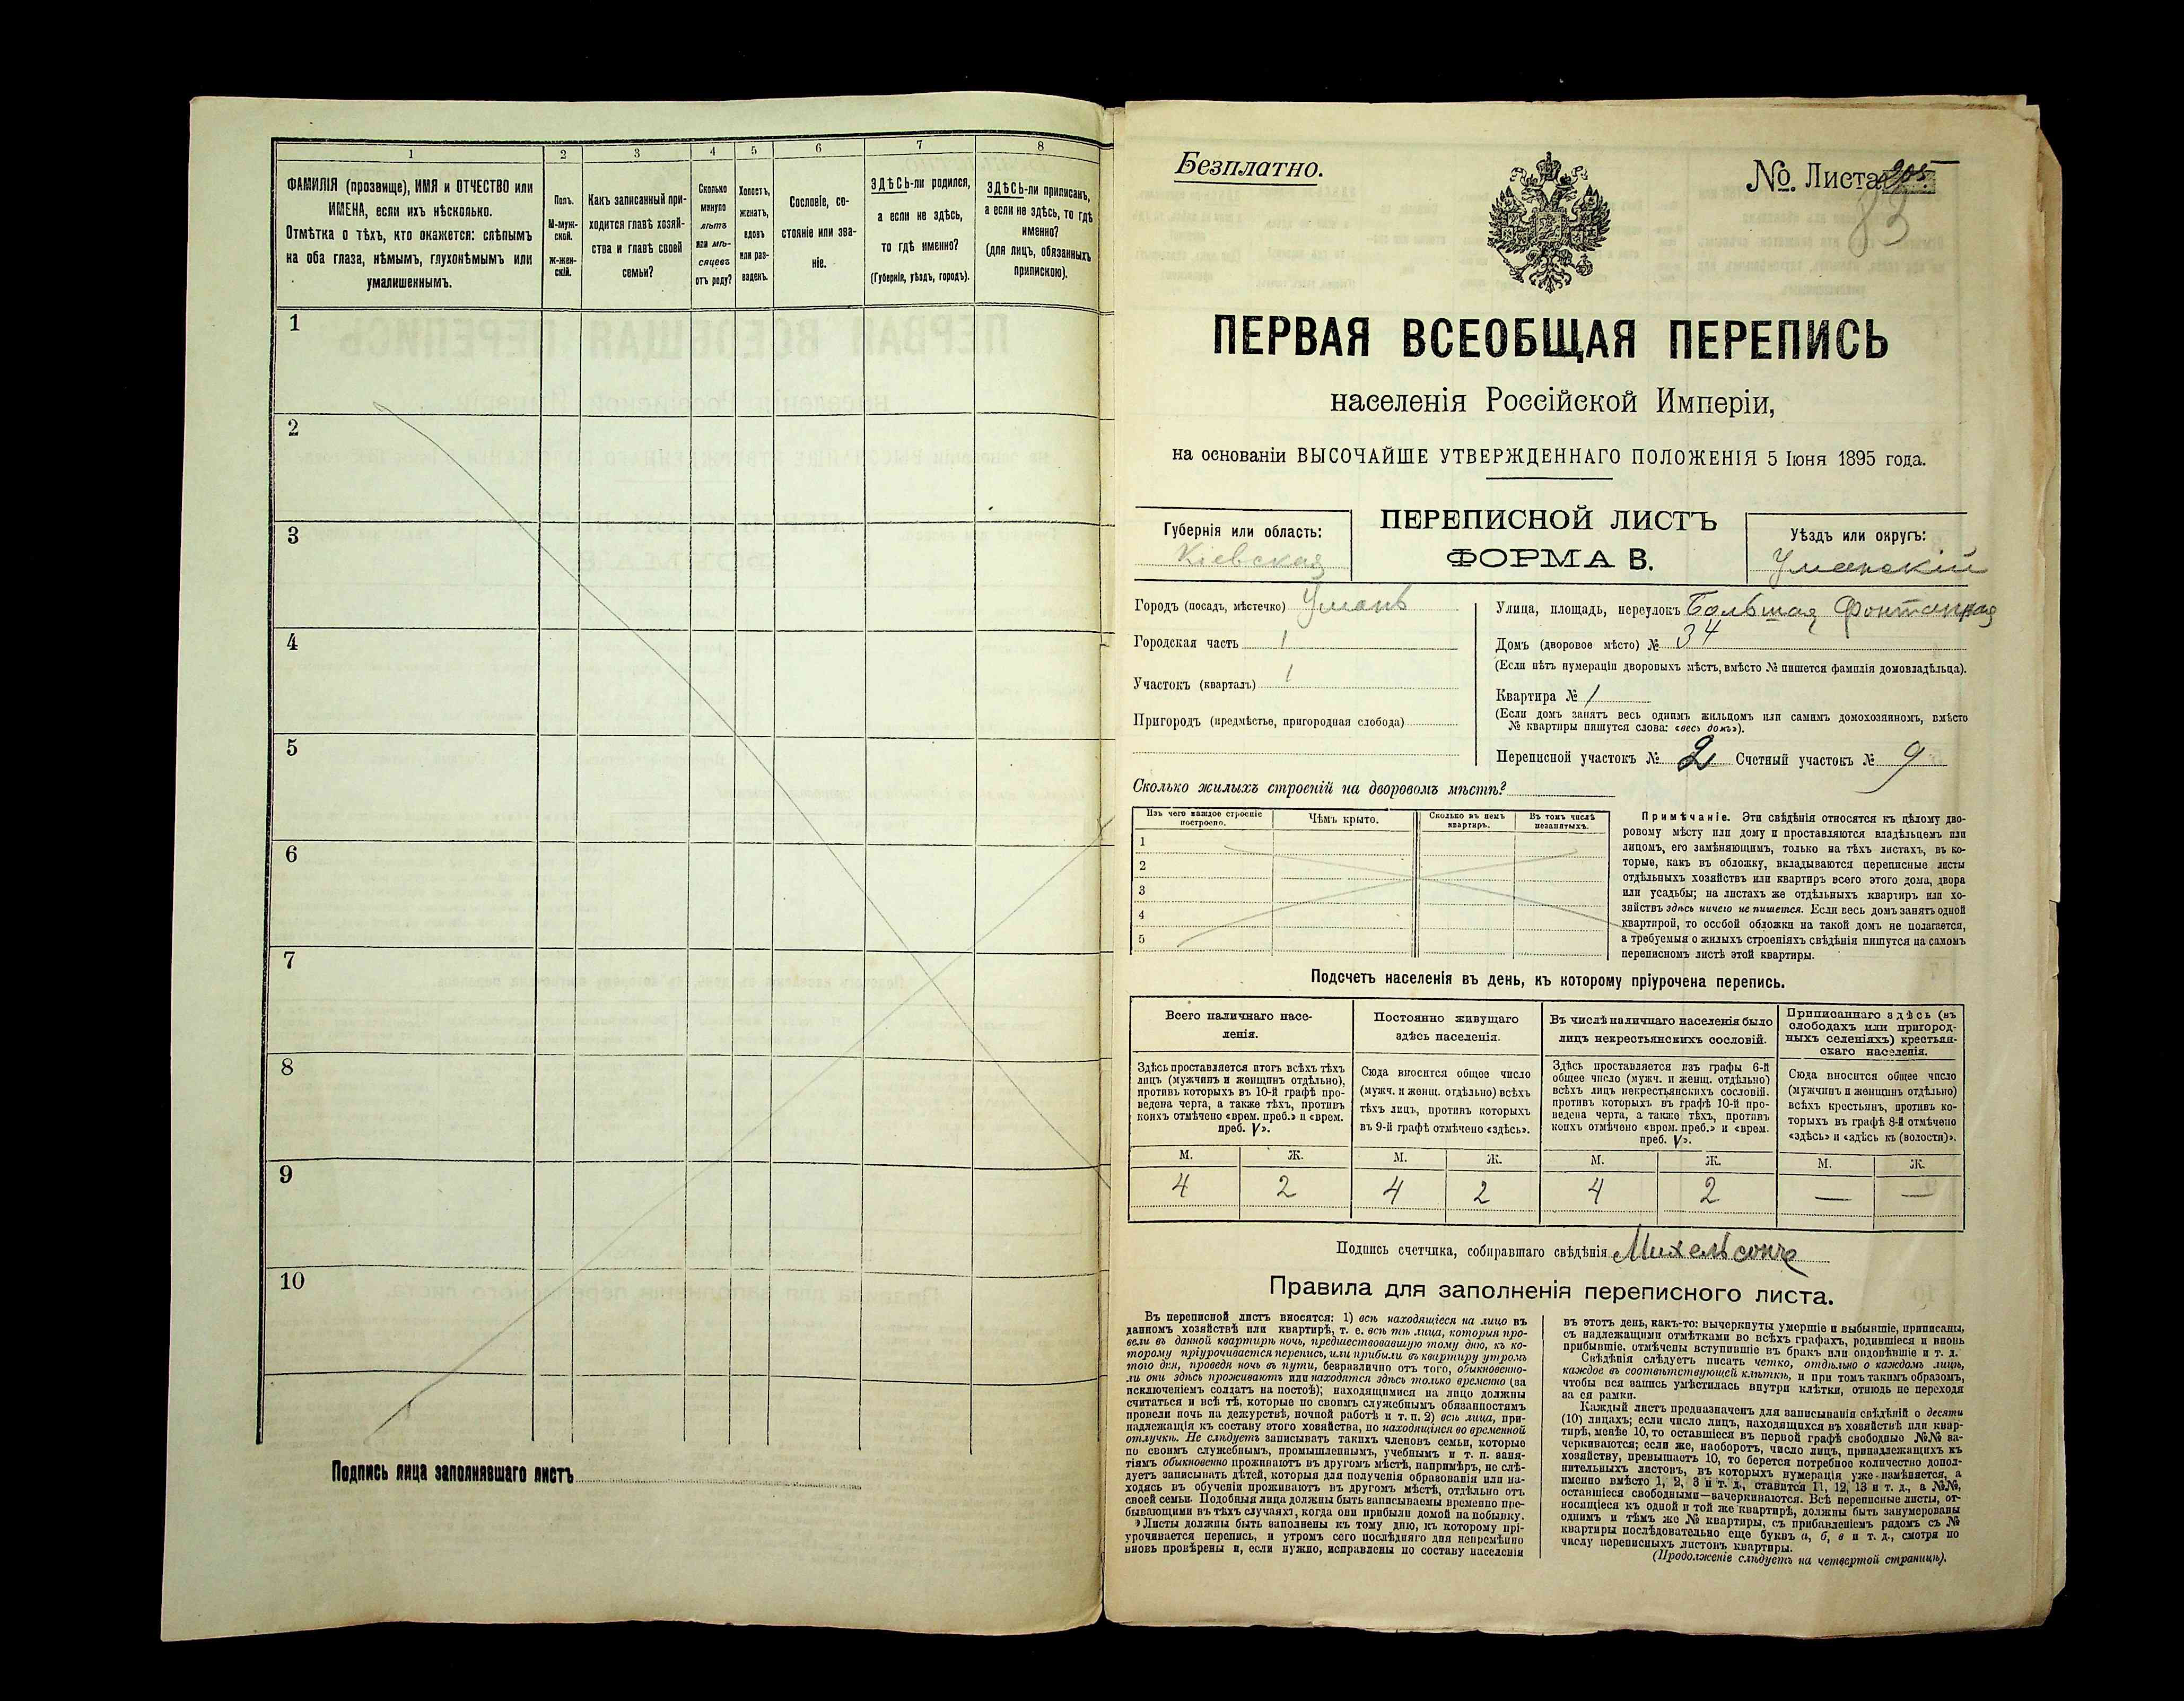 1
2
3
4
5
6
7
8
ФАМИЛІЯ (прозвище), ИМЯ и ОТЧЕСТВО или
ИМЕНА, если ихъ нѣсколько.
Отмѣтка о тѣхъ, кто окажется: слѣпымъ
на оба глаза, нѣмымъ, глухонѣмымъ или
умалишеннымъ.
Полъ.
М-муж-
ской.
Ж-жен-
скій.
Какъ записанный при-
ходится главѣ хозяй-
ства и главѣ своей
семьи?
Сколько
минуло
лѣтъ
или мѣ-
сяцевъ
отъ роду?
Холостъ,
женатъ,
вдовъ
или раз-
веденъ.
Сословіе, со-
стояніе или зва-
ніе.
ЗДѢСЬ-ли родился,
а если не здѣсь,
то гдѣ именно?
(Губернія, уѣздъ, городъ).
ЗДѢСЬ-ли приписанъ,
а если не здѣсь, то гдѣ
именно?
(для лицъ, обязанныхъ
припискою).
1
2
3
4
5
6
7
8
9
10
Подпись лица заполнявшаго листъ
Безплатно.
№. Листа 205
83
ПЕРВАЯ ВСЕОБЩАЯ ПЕРЕПИСЬ
населенія Россійской Имперіи,
на основаніи ВЫСОЧАЙШЕ УТВЕРЖДЕННАГО ПОЛОЖЕНІЯ 5 Іюня 1895 года.
Губернія или область:
Кіевская
ПЕРЕПИСНОЙ ЛИСТЪ
ФОРМА В.
Уѣздъ или округъ:
Уманскій
Городъ (посадъ, мѣстечко) Умань
Городская часть 1
Участокъ (кварталъ) 1
Пригородъ (предмѣстье, пригородная слобода)
Улица, площадь, переулокъ Большая Фонтанная
Домъ (дворовое мѣсто) № 34
(Если нѣтъ нумераціи дворовыхъ мѣстъ, вмѣсто № пишется фамилія домовладѣльца).
Квартира № 1
(Если домъ занятъ весь однимъ жильцомъ или самимъ домохозяиномъ, вмѣсто
№ квартиры пишутся слова: «весь домъ»).
Переписной участокъ № 2 Счетный участокъ № 9
Сколько жилыхъ строеній на дворовомъ мѣстѣ?
Изъ чего каждое строеніе
построено.
Чѣмъ крыто.
Сколько въ немъ
квартиръ.
Въ томъ числѣ
незанятыхъ.
1
2
3
4
5
Примѣчаніе. Эти свѣдѣнія относятся къ цѣлому дво-
ровому мѣсту или дому и проставляются владѣльцемъ или
лицомъ, его замѣняющимъ, только на тѣхъ листахъ, въ ко-
торые, какъ въ обложку, вкладываются переписные листы
отдѣльныхъ хозяйствъ или квартиръ всего этого дома, двора
или усадьбы; на листахъ же отдѣльныхъ квартиръ или хо-
зяйствъ здѣсь ничего не пишется. Если весь домъ занятъ одной
квартирой, то особой обложки на такой домъ не полагается,
а требуемыя о жилыхъ строеніяхъ свѣдѣнія пишутся на самомъ
переписномъ листѣ этой квартиры.
Подсчетъ населенія въ день, къ которому пріурочена перепись.
Всего наличнаго насе-
ленія.
Здѣсь проставляется итогъ всѣхъ тѣхъ
лицъ (мужчинъ и женщинъ отдѣльно),
противъ которыхъ въ 10-й графѣ про-
ведена черта, а также тѣхъ, противъ
коихъ отмѣчено «врем. преб.» и «врем.
преб. V».
Постоянно живущаго
здѣсь населенія.
Сюда вносится общее число
(мужч. и женщ. отдѣльно) всѣхъ
тѣхъ лицъ, противъ которыхъ
въ 9-й графѣ отмѣчено «здѣсь».
Въ числѣ наличнаго населенія было
лицъ некрестьянскихъ сословій.
Здѣсь проставляется изъ графы 6-й
общее число (мужч. и женщ. отдѣльно)
всѣхъ лицъ некрестьянскихъ сословій.
противъ которыхъ въ графѣ 10-й про-
ведена черта, а также тѣхъ, противъ
коихъ отмѣчено «врем. преб.» и «врем.
преб. V».
Приписаннаго здѣсь (въ
слободахъ или пригород-
ныхъ селеніяхъ) крестьян-
скаго населенія.
Сюда вносится общее число
(мужчинъ и женщинъ отдѣльно)
всѣхъ крестьянъ, противъ ко-
торыхъ въ графѣ 8-й отмѣчено
«здѣсь» и «здѣсь къ (волости)».
М. Ж. М. Ж. М. Ж. М. Ж.
4 2 4 2 4 2 — —
Подпись счетчика, собиравшаго свѣдѣнія Михельсонъ
Правила для заполненія переписного листа.
Въ переписной листъ вносятся: 1) всѣ находящіеся на лицо въ
данномъ хозяйствѣ или квартирѣ, т. е. всѣ тѣ лица, которыя про-
вели въ данной квартирѣ ночь, предшествовавшую тому дню, къ ко-
торому пріурочивается перепись, или прибыли въ квартиру утромъ
того дня, проведя ночь въ пути, безразлично отъ того, обыкновенно-
ли они здѣсь проживаютъ или находятся здѣсь только временно (за
исключеніемъ солдатъ на постоѣ); находящимися на лицо должны
считаться и всѣ тѣ, которые по своимъ служебнымъ обязанностямъ
провели ночь на дежурствѣ, ночной работѣ и т. п. 2) всѣ лица, при-
надлежащія къ составу этого хозяйства, но находящіяся во временной
отлучкѣ. Не слѣдуетъ записывать такихъ членовъ семьи, которые
по своимъ служебнымъ, промышленнымъ, учебнымъ и т. п. заня-
тіямъ обыкновенно проживаютъ въ другомъ мѣстѣ, напримѣръ, не слѣ-
дуетъ записывать дѣтей, которыя для полученія образованія или на-
ходясь въ обученіи проживаютъ въ другомъ мѣстѣ, отдѣльно отъ
своей семьи. Подобныя лица должны быть записываемы временно пре-
бывающими въ тѣхъ случаяхъ, когда они прибыли домой на побывку.
Листы должны быть заполнены къ тому дню, къ которому прі-
урочивается перепись, и утромъ сего послѣдняго дня непремѣнно
вновь провѣрены и, если нужно, исправлены по составу населенія
въ этотъ день, какъ-то: вычеркнуты умершіе и выбывшіе, приписаны,
съ надлежащими отмѣтками во всѣхъ графахъ, родившіеся и вновь
прибывшіе, отмѣчены вступившіе въ бракъ или овдовѣвшіе и т. д.
Свѣдѣнія слѣдуетъ писать четко, отдѣльно о каждомъ лицѣ,
каждое въ соотвѣтствующей клѣткѣ, и при томъ такимъ образомъ,
чтобы вся запись умѣстилась внутри клѣтки, отнюдь не переходя
за ея рамки.
Каждый листъ предназначенъ для записыванія свѣдѣній о десяти
(10) лицахъ; если число лицъ, находящихся въ хозяйствѣ или квар-
тирѣ, менѣе 10, то оставшіеся въ первой графѣ свободные №№ за-
черкиваются; если же, наоборотъ, число лицъ, принадлежащихъ къ
хозяйству, превышаетъ 10, то берется потребное количество допол-
нительныхъ листовъ, въ которыхъ нумерація уже измѣняется, а
именно вмѣсто 1, 2, 3 и т. д., ставится 11, 12, 13 и т. д., а №№,
оставшіеся свободными—вачеркиваются. Всѣ переписные листы, от-
носящіеся къ одной и той же квартирѣ, должны быть занумерованы
однимъ и тѣмъ же № квартиры, съ прибавленіемъ рядомъ съ №
квартиры послѣдовательно еще буквъ а, б, в и т. д., смотря по
числу переписныхъ листовъ квартиры.
(Продолженіе слѣдуетъ на четвертой страницѣ).